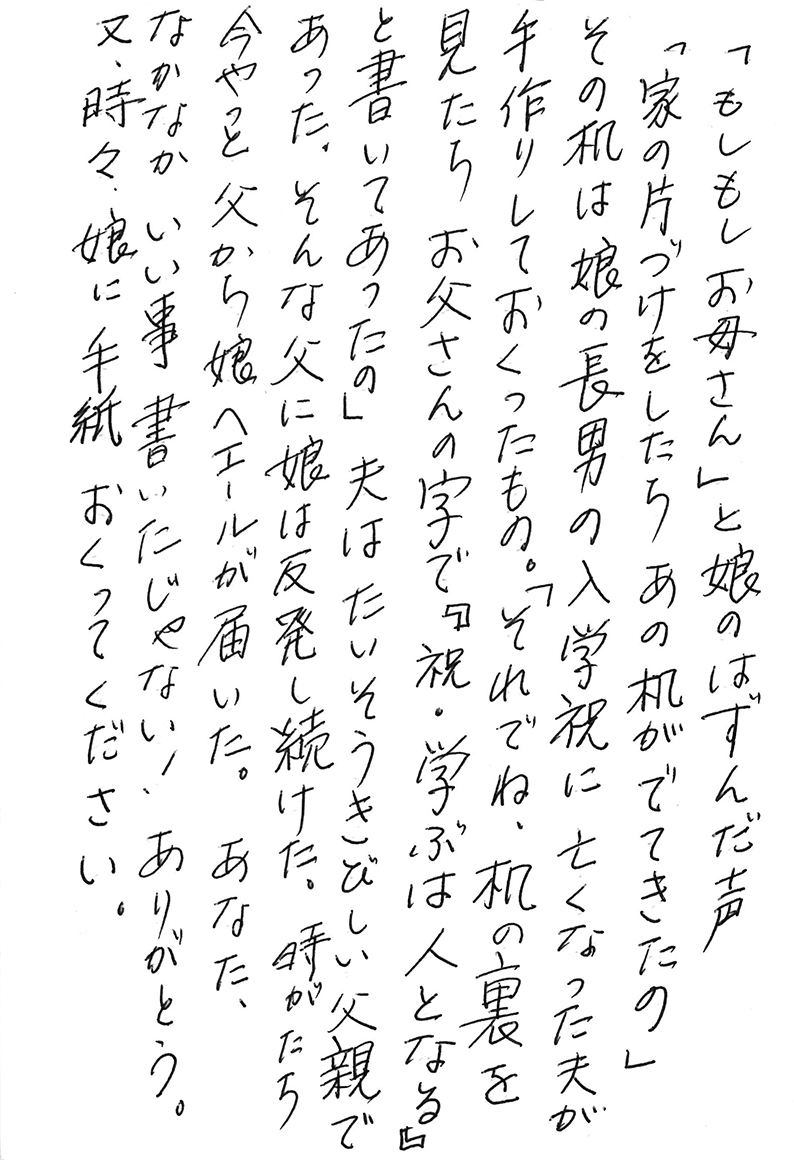 「もしもしお母さん」と娘のはずんだ声
「家の片づけをしたら あの机がでてきたの」
その机は娘の長男の入学祝に 亡くなった夫が
手作りしておくったもの。「それでね、机の裏を
見たら お父さんの字で『祝・学ぶは人となる』
と書いてあったの」 夫は たいそうきびしい父親で
あった。そんな父に娘は反発し続けた。時がたち
今やっと父から娘へエールが届いた。 あなた、
なかなか いい事 書いたじゃない！、 ありがとう。
又、時々、娘に 手紙 おくってください。